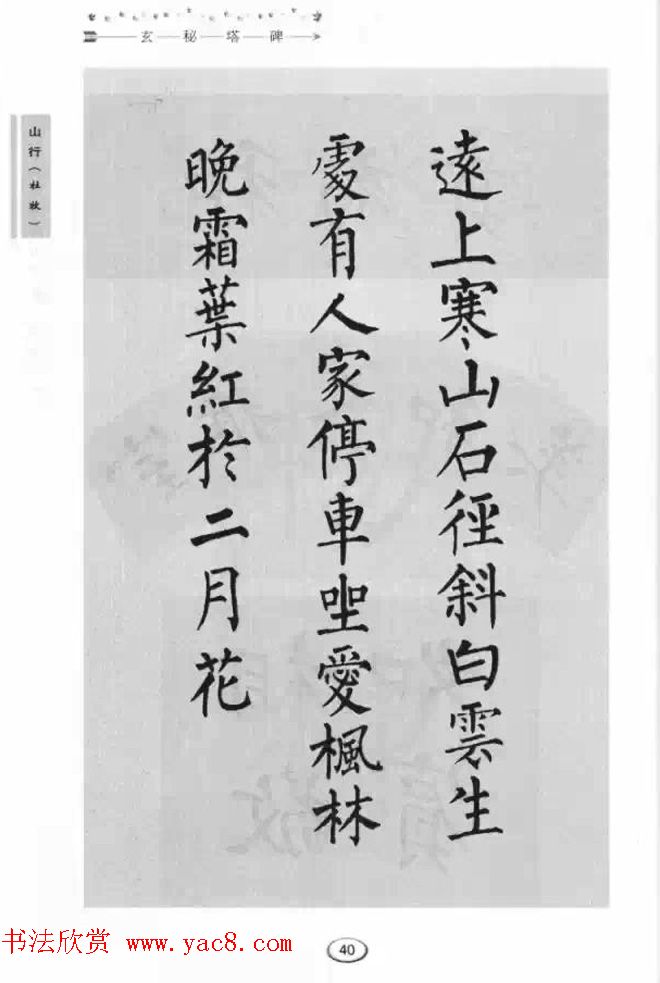 玄秘塔碑
山行（杜牧）
遠上寒山石徑斜白雲生
處有人家停車坐愛楓林
晚霜葉紅於二月花
40
书法欣赏 www.yac8.com